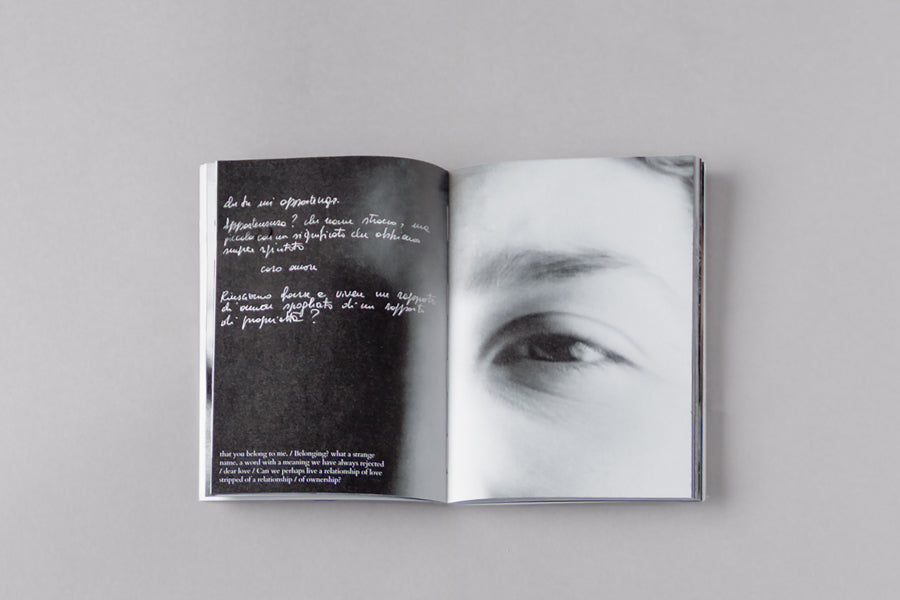 che tu mi appartenga.
Appartenenza? che nome strano, una
parola con un significato che abbiamo
sempre rifiutato
caro amore
Riusciamo forse a vivere un rapporto
di amore spogliato di un rapporto
di proprietà?
that you belong to me. / Belonging? what a strange
name, a word with a meaning we have always rejected
/ dear love / Can we perhaps live a relationship of love
stripped of a relationship / of ownership?